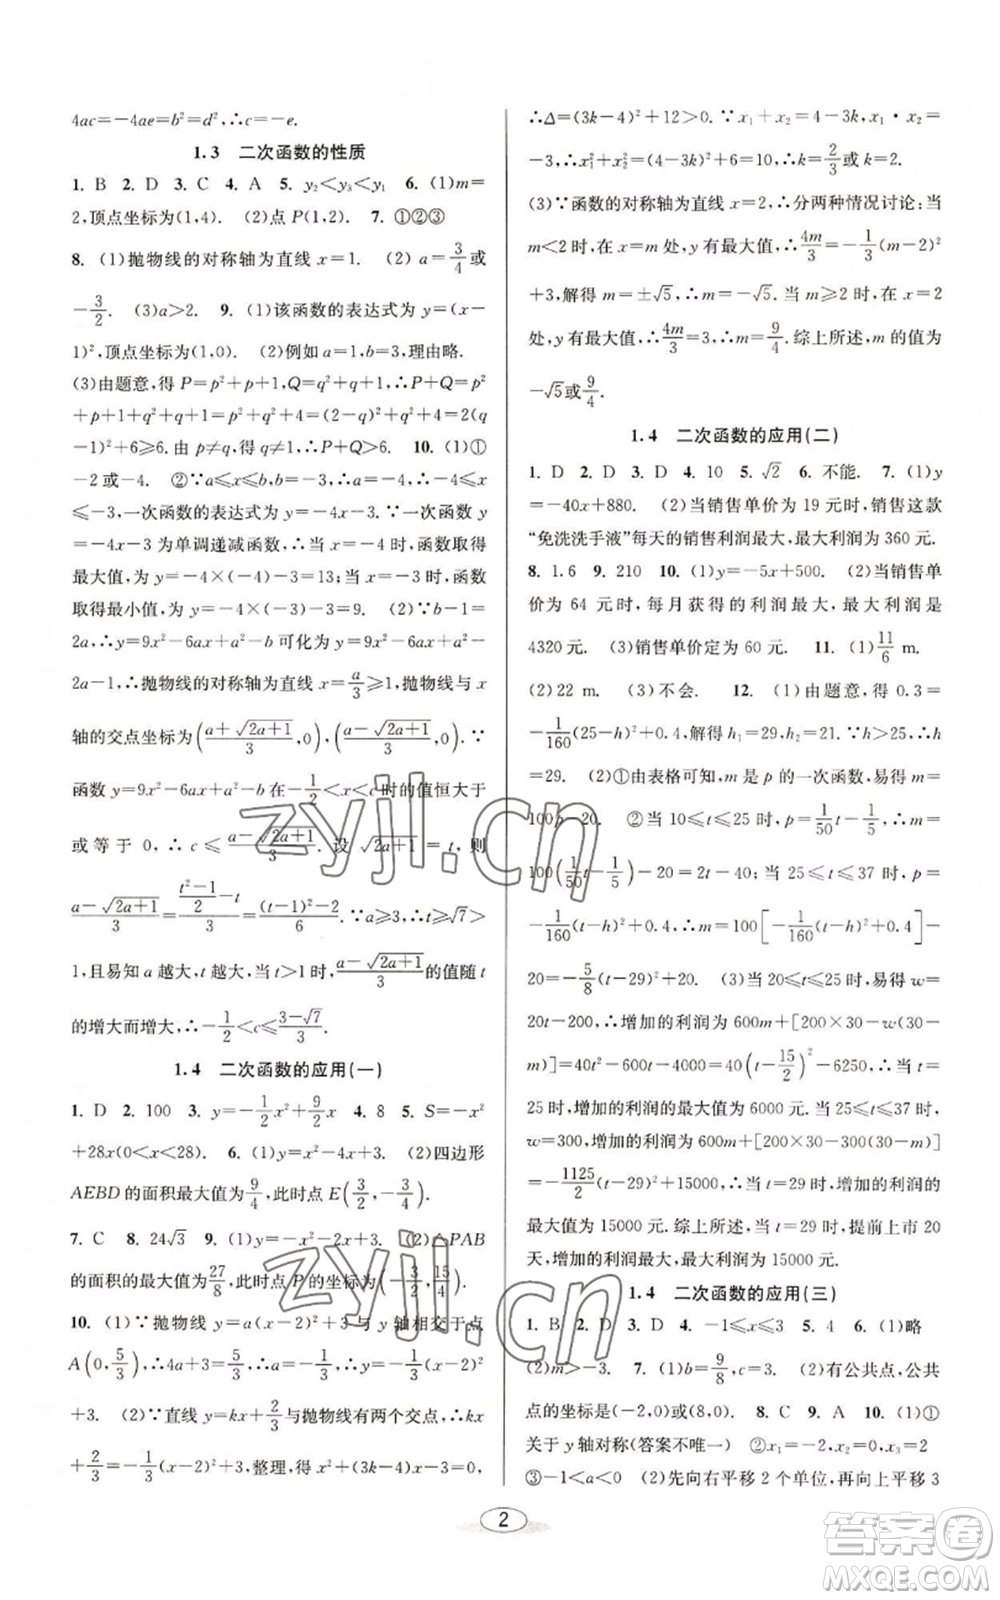 4ac=-4ae=b²=d²,∴c=-e.
1.3 二次函数的性质
1. B 2. D 3. C 4. A 5. y₂<y₃<y₁ 6. (1)m=
2,顶点坐标为(1,4). (2)点 P(1,2). 7. ①②③
8. (1)抛物线的对称轴为直线 x=1. (2) a=3/4或
-3/2. (3)a>2. 9. (1)该函数的表达式为 y=(x-
1)²,顶点坐标为(1,0). (2)例如 a=1,b=3,理由略.
(3)由题意,得 P=p²+p+1,Q=q²+q+1,∴P+Q=p²
+p+1+q²+q+1=p²+q²+4=(2-q)²+q²+4=2(q
-1)²+6≥6.由 p≠q,得 q≠1,∴P+Q>6. 10. (1)①
-2或-4. ②∵a≤x≤b,b=-3,a=-4,∴-4≤x
≤-3,一次函数的表达式为 y=-4x-3.∵一次函数 y
=-4x-3 为单调递减函数,∴当 x=-4 时,函数取得
最大值,为 y=-4×(-4)-3=13;当 x=-3时,函数
取得最小值,为 y=-4×(-3)-3=9. (2)∵b-1=
2a,∴y=9x²-6ax+a²-b 可化为 y=9x²-6ax+a²-
2a-1,∴抛物线的对称轴为直线 x=a/3≥1.∵抛物线与 x
轴的交点坐标为((a+√(2a+1))/3,0),((a-√(2a+1))/3,0).∵
函数 y=9x²-6ax+a²-b 在-1/2<x<c 时的值恒大于
或等于 0,∴c≤(a-√(2a+1))/3. 设 √(2a+1)=t,则
(a-√(2a+1))/3=((t²-1)/2-t)/3=((t-1)²-2)/6.∵a≥3,∴t≥√7>
1,且易知 a 越大,t 越大,当 t>1时,(a-√(2a+1))/3的值随 t
的增大而增大,∴-1/2<c≤(3-√7)/3.
1.4 二次函数的应用(一)
1. D 2. 100 3. y=-1/2x²+9/2x 4. 8 5. S=-x²
+28x(0<x<28). 6. (1)y=x²-4x+3. (2)四边形
AEBD 的面积最大值为9/4,此时点 E(3/2,-3/4).
7. C 8. 24√3 9. (1)y=-x²-2x+3. (2)△PAB
的面积的最大值为27/8,此时点 P 的坐标为(-3/2,15/4).
10. (1)∵抛物线 y=a(x-2)²+3 与 y 轴相交于点
A(0,5/3),∴4a+3=5/3,∴a=-1/3,∴y=-1/3(x-2)²
+3. (2)∵直线 y=kx+2/3与抛物线有两个交点,∴kx
+2/3=-1/3(x-2)²+3,整理,得 x²+(3k-4)x-3=0,
∴Δ=(3k-4)²+12>0.∵x₁+x₂=4-3k,x₁·x₂=
-3,∴x₁²+x₂²=(4-3k)²+6=10,∴k=2/3或 k=2.
(3)∵函数的对称轴为直线 x=2,∴分两种情况讨论:当
m<2时,在 x=m 处,y 有最大值,∴4m/3=-1/3(m-2)²
+3,解得 m=±√5,∴m=-√5. 当 m≥2 时,在 x=2
处,y 有最大值,∴4m/3=3,∴m=9/4.综上所述,m 的值为
-√5或9/4.
1.4 二次函数的应用(二)
1. D 2. D 3. D 4. 10 5. √2 6. 不能. 7. (1)y
=-40x+880. (2)当销售单价为 19 元时,销售这款
“免洗洗手液”每天的销售利润最大,最大利润为 360 元.
8. 1.6 9. 210 10. (1)y=-5x+500. (2)当销售单
价为 64 元时,每月获得的利润最大,最大利润是
4320 元. (3)销售单价定为 60 元. 11. (1)11/6 m.
(2)22 m. (3)不会. 12. (1)由题意,得 0.3=
-1/160(25-h)²+0.4,解得 h₁=29,h₂=21.∵h>25,∴h
=29. (2)①由表格可知,m 是 p 的一次函数,易得 m=
100p-20. ②当 10≤t≤25 时,p=1/50t-1/5,∴m=
100(1/50t-1/5)-20=2t-40; 当 25≤t≤37 时,p=
-1/160(t-h)²+0.4,∴m=100[-1/160(t-h)²+0.4]-
20=-5/8(t-29)²+20. (3)当 20≤t≤25 时,易得 w=
20t-200,∴增加的利润为 600m+[200×30-w(30-
m)]=40t²-600t-4000=40(t-15/2)²-6250,∴当 t=
25时,增加的利润的最大值为 6000 元.当 25≤t≤37 时,
w=300,增加的利润为 600m+[200×30-300(30-m)]
=-1125/2(t-29)²+15000,∴当 t=29 时,增加的利润的
最大值为 15000 元.综上所述,当 t=29 时,提前上市 20
天,增加的利润最大,最大利润为 15000 元.
1.4 二次函数的应用(三)
1. B 2. D 3. D 4. -1≤x≤3 5. 4 6. (1)略
(2)m>-3. 7. (1)b=9/8,c=3. (2)有公共点,公共
点的坐标是(-2,0)或(8,0). 8. C 9. A 10. (1)①
关于 y 轴对称(答案不唯一) ②x₁=-2,x₂=2
③-1<a<0 (2)先向右平移 2 个单位,再向上平移 3
2
zyjl.cn
zyjl.cn
答案圈
MXQE.COM